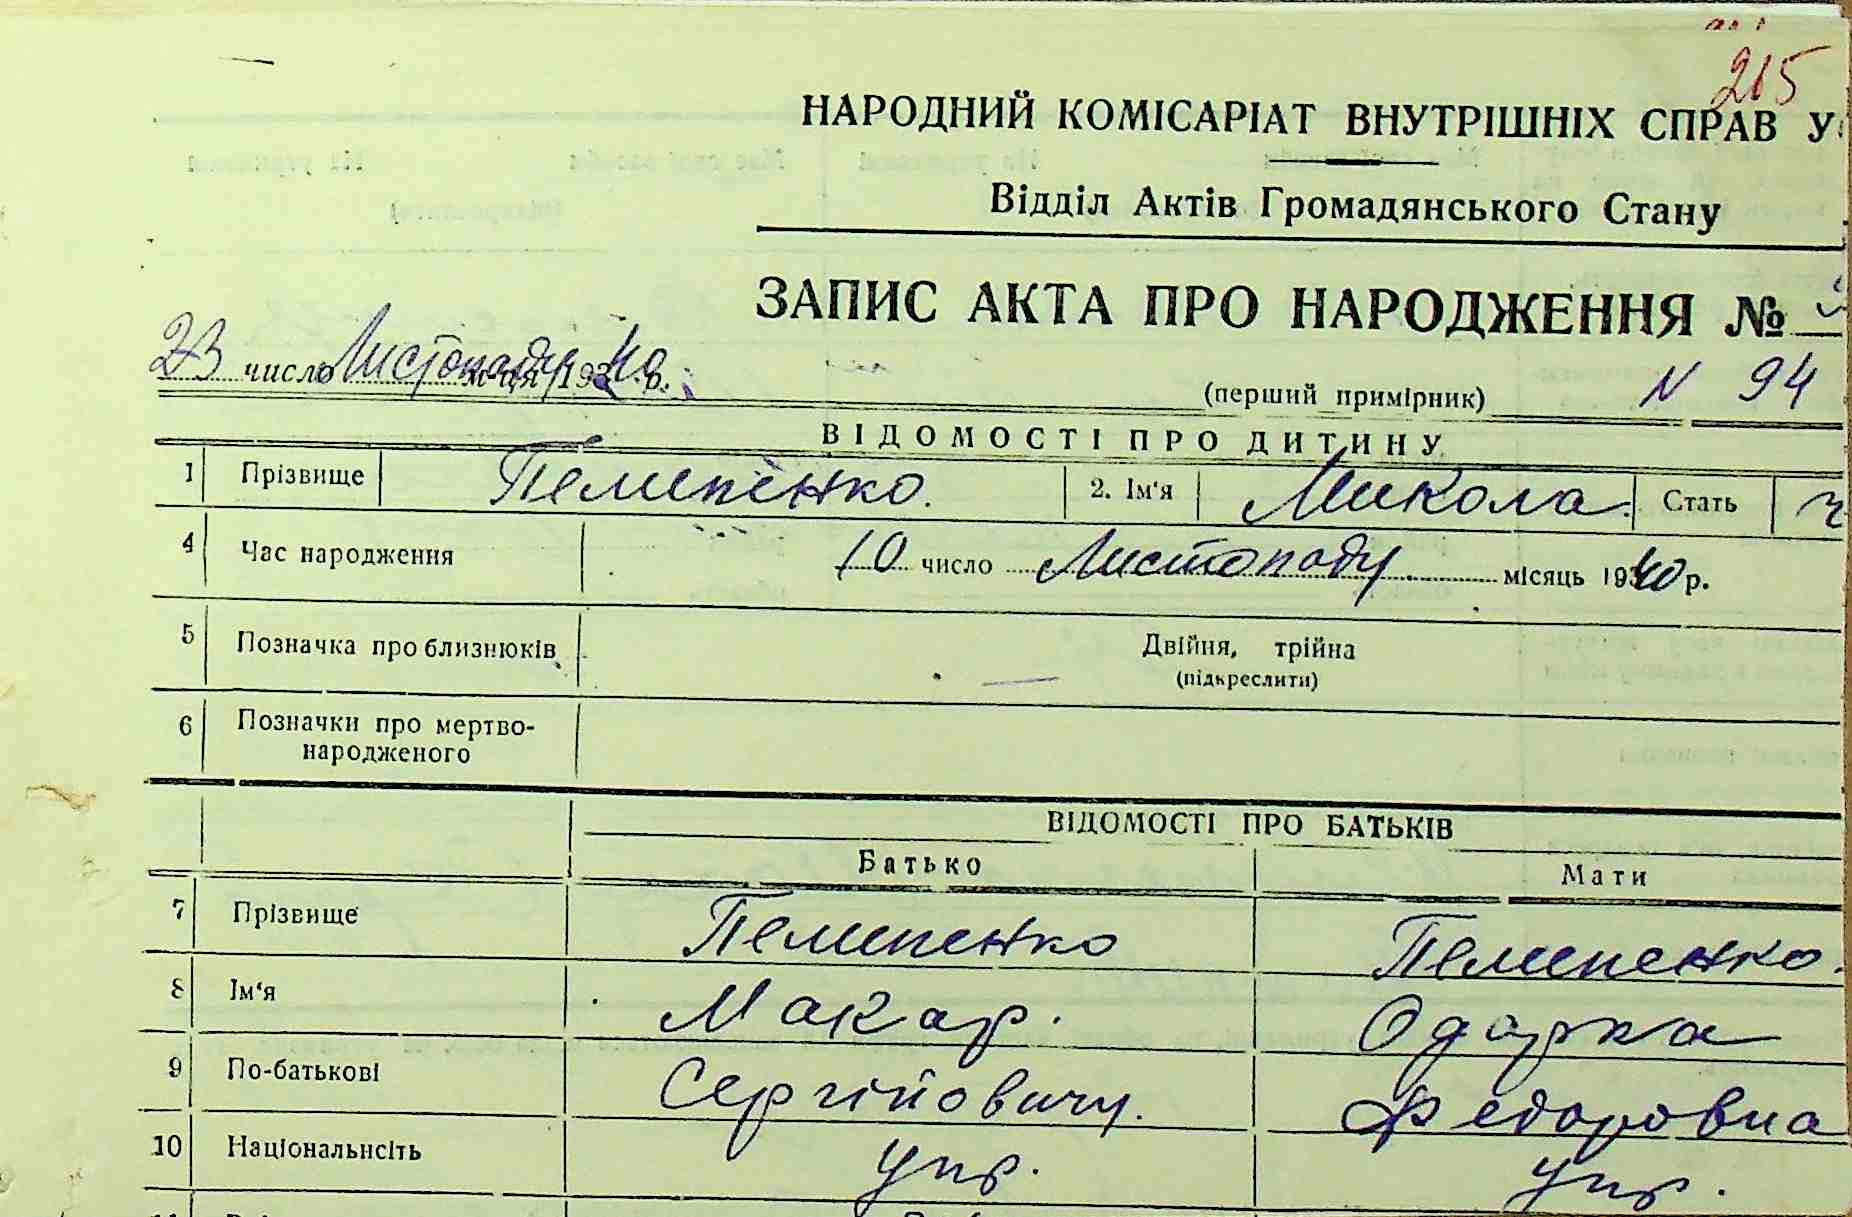 215
НАРОДНИЙ КОМІСАРІАТ ВНУТРІШНІХ СПРАВ У
Відділ Актів Громадянського Стану
ЗАПИС АКТА ПРО НАРОДЖЕННЯ №
23 число Листопаду м-ця 193 40 р.
(перший примірник) N 94
ВІДОМОСТІ ПРО ДИТИНУ
1 Прізвище Пелипенко. 2. Ім'я Микола. Стать ч
4 Час народження 10 число Листопаду місяць 1940 р.
5 Позначка про близнюків Двійня, трійна
(підкреслити)
6 Позначки про мертво-
народженого
ВІДОМОСТІ ПРО БАТЬКІВ
Батько Мати
7 Прізвище Пелипенко Пелипенко.
8 Ім'я Макар. Одарка
9 По-батькові Сергійовичу. Федоровна
10 Національнсіть Укр. Укр.